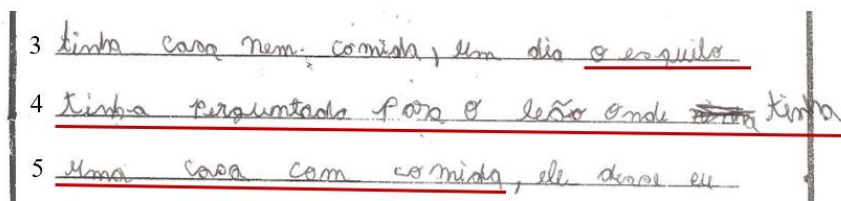 3 tinha casa nem. comida, um dia o esquilo
4 tinha perguntado para o leão onde tinha
5 uma casa com comida, ele disse eu